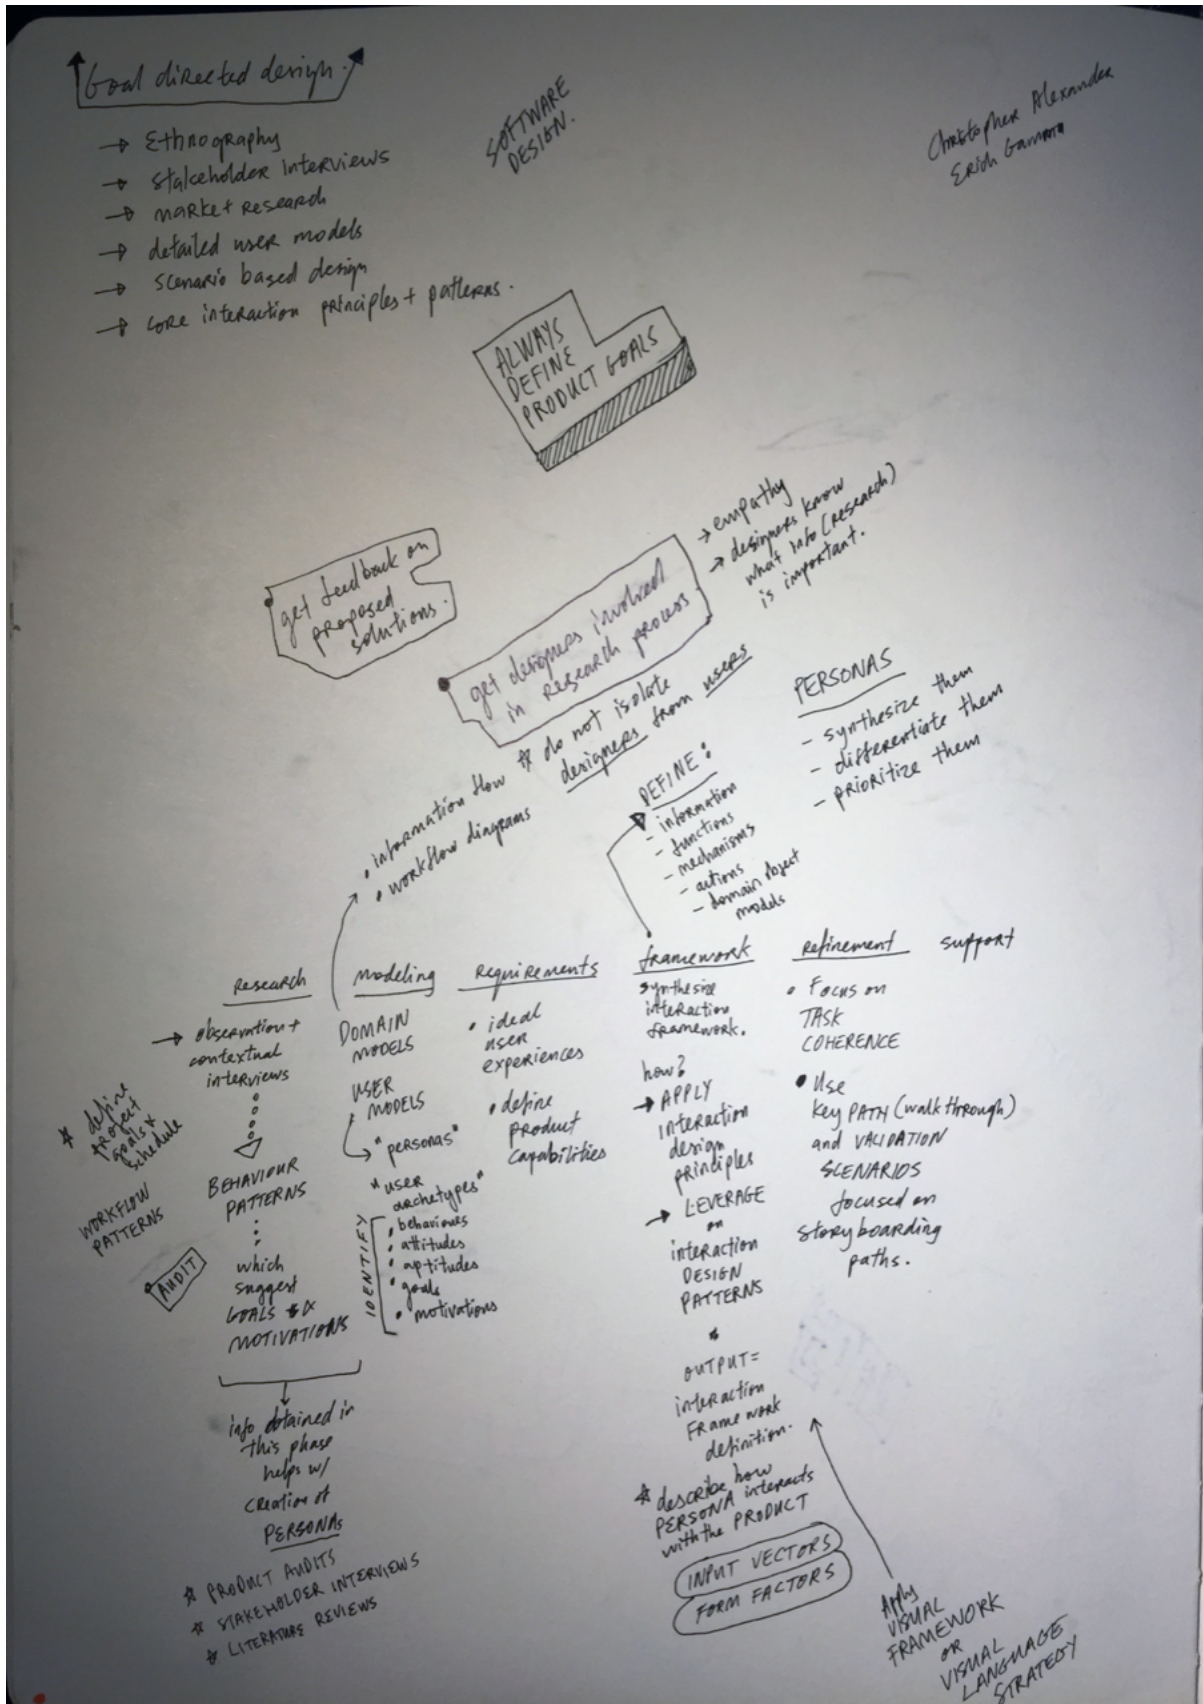 Goal directed design.
→ Ethnography
→ stakeholder interviews
→ market research
→ detailed user models
→ scenario based design
→ core interaction principles + patterns.
SOFTWARE
DESIGN.
Christopher Alexander
Erich Gamma
ALWAYS
DEFINE
PRODUCT GOALS
get feedback on
proposed
solutions.
get designers involved
in research process
→ empathy
→ designers know
what info (research)
is important.
☆ do not isolate
designers from users
• information flow
• workflow diagrams
PERSONAS
- synthesize them
- differentiate them
- prioritize them
DEFINE:
- information
- functions
- mechanisms
- actions
- domain object
models
research
→ observation +
contextual
interviews
BEHAVIOUR
PATTERNS
which
suggest
GOALS &
MOTIVATIONS
info obtained in
this phase
helps w/
creation of
PERSONAs
☆ PRODUCT AUDITS
☆ STAKEHOLDER INTERVIEWS
☆ LITERATURE REVIEWS
☆ define
project
goals &
schedule
WORKFLOW
PATTERNS
AUDIT
modeling
DOMAIN
MODELS
USER
MODELS
→ "personas"
"user
archetypes"
IDENTIFY
• behaviours
• attitudes
• aptitudes
• goals
• motivations
requirements
• ideal
user
experiences
• define
product
capabilities
framework
synthesize
interaction
framework.
how?
→ APPLY
interaction
design
principles
→ LEVERAGE
on
interaction
DESIGN
PATTERNS
OUTPUT =
interaction
Framework
definition.
☆ describe how
PERSONA interacts
with the PRODUCT
INPUT VECTORS
FORM FACTORS
refinement
• Focus on
TASK
COHERENCE
• Use
key PATH (walk through)
and VALIDATION
SCENARIOS
focused on
storyboarding
paths.
support
Apply
VISUAL
FRAMEWORK
OR
VISUAL
LANGUAGE
STRATEGY